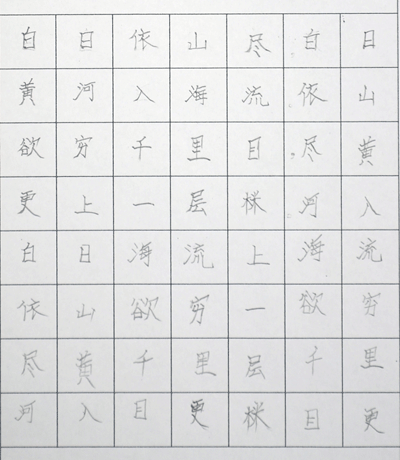 白日依山尽白日
黄河入海流依山
欲穷千里目尽黄
更上一层楼河入
白日海流上海流
依山欲穷一欲穷
尽黄千里层千里
河入目更楼目更